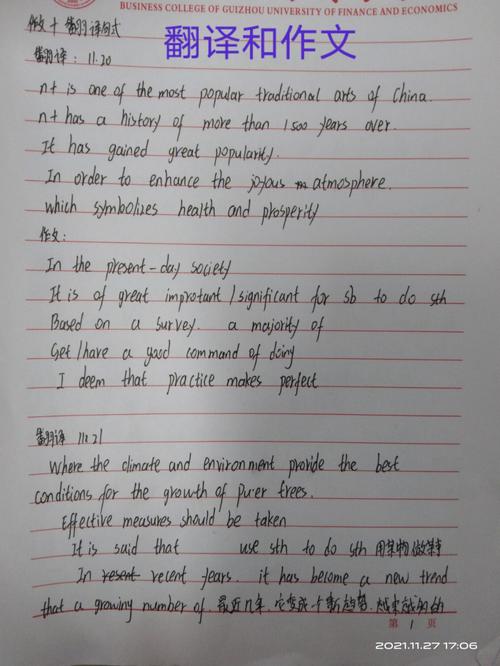 BUSINESS COLLEGE OF GUIZHOU UNIVERSITY OF FINANCE AND ECONOMICS
作文 + 翻译句式
翻译和作文
翻译: 11.20
n+ is one of the most popular traditional arts of China.
n+ has a history of more than 1500 years over.
It has gained great popularity.
In order to enhance the joyous atmosphere.
which symbolizes health and prosperity
作文:
In the present-day society
It is of great improtant / significant for sb to do sth
Based on a survey. a majority of
Get / have a good command of doing
I deem that practice makes perfect
翻译 11.21
Where the climate and environment provide the best
conditions for the growth of Pu-er trees.
Effective measures should be taken
It is said that use sth to do sth 用某物做某事
In resent recent years. it has become a new trend
that a growing number of. 最近几年, 它变成一个新趋势. 越来越多的
第 1 页
2021.11.27 17:06